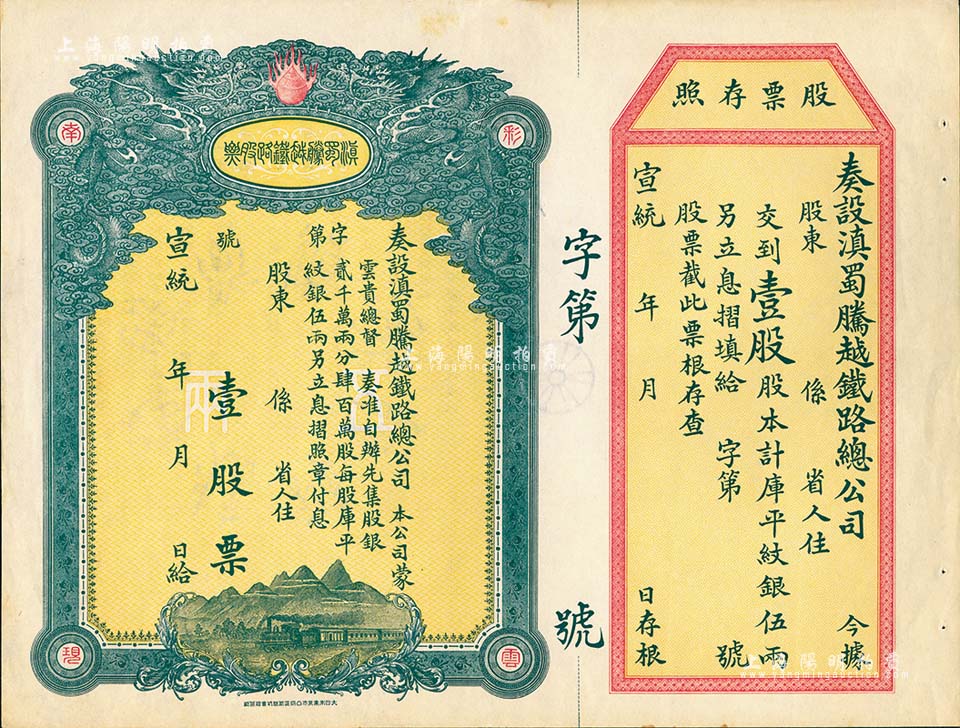 股票存照
奏設滇蜀騰越鐵路總公司 今據
股東 係 省人住
交到壹股股本計庫平紋銀伍兩
另立息摺填給 字第 號
股票截此票根存查
宣統 年 月 日存根
字第 號
滇蜀騰越鐵路股票
彩
南
雲
現
奏設滇蜀騰越鐵路總公司 本公司蒙
雲貴總督 奏准自辦先集股銀
貳千萬兩分肆百萬股每股庫平
紋銀伍兩另立息摺照章付息
字第 號
股東 係 省人住
壹股票
宣統 年 月 日給
伍兩
上海陽明拍賣
www.yangmingauction.com
上海陽明拍賣
www.yangmingauction.com
上海陽明拍賣
www.yangmingauction.com